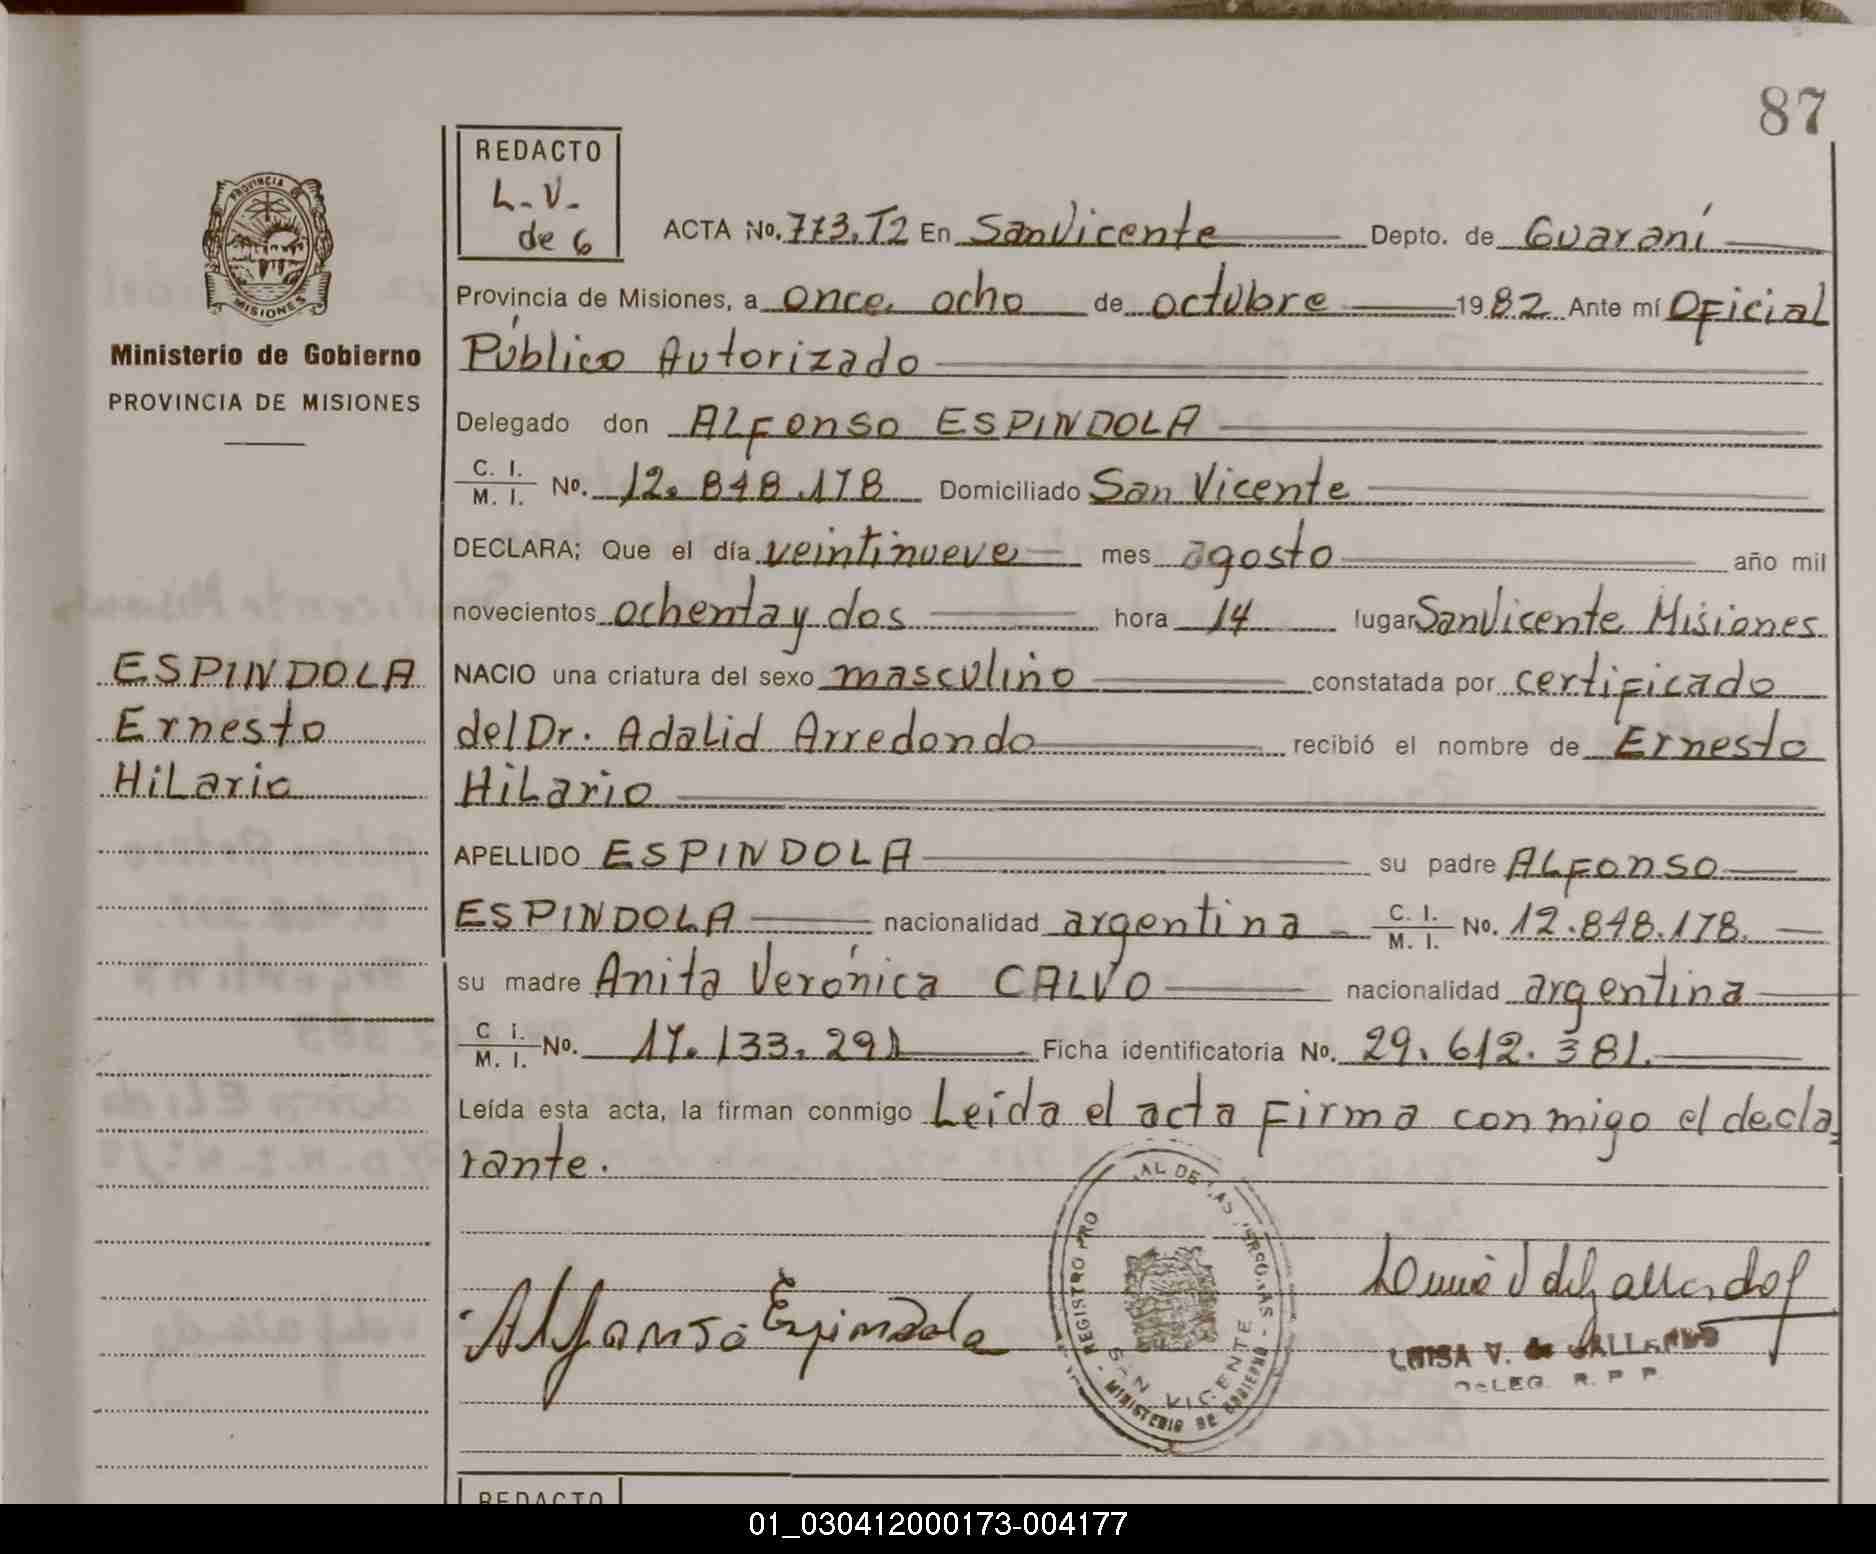 87
REDACTO
L.V.
de G
PROVINCIA
MISIONES
Ministerio de Gobierno
PROVINCIA DE MISIONES
ACTA No. 773.T2 En San Vicente Depto. de Guaraní
Provincia de Misiones, a once, ocho de octubre 1982 Ante mí Oficial
Público Autorizado
Delegado don ALFonso ESPINDOLA
C. I. / M. I. No. 12.848.178 Domiciliado San Vicente
DECLARA; Que el día veintinueve mes agosto año mil
novecientos ochenta y dos hora 14 lugar San Vicente Misiones
ESPINDOLA
Ernesto
HiLario
NACIO una criatura del sexo masculino constatada por certificado
del Dr. Adalid Arredondo recibió el nombre de Ernesto
HiLario
APELLIDO ESPINDOLA su padre ALFONSO
ESPINDOLA nacionalidad argentina C. I. / M. I. No. 12.848.178.
su madre Anita Verónica CALVO nacionalidad argentina
C I. / M. I. No. 17.133.291 Ficha identificatoria No. 29.612.381.
Leída esta acta, la firman conmigo Leída el acta firma conmigo el decla
rante.
Alfonso Espindola
REGISTRO PRO AL DE LAS PERSONAS
SAN VICENTE
MINISTERIO DE GOBIERNO
LUISA V. de GALLARDO
DELEG. R. P. P.
REDACTO
01_030412000173-004177